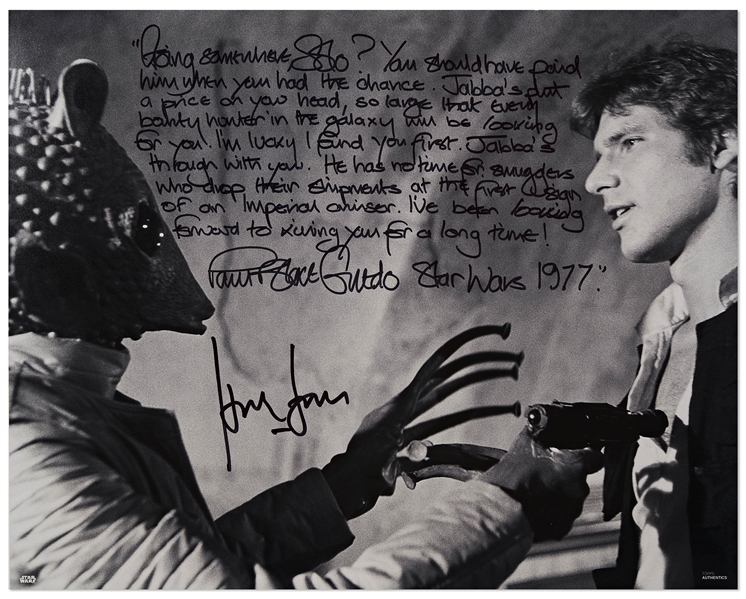 "Going somewhere Solo? You should have paid
him when you had the chance. Jabba's put
a price on your head, so large that every
bounty hunter in the galaxy will be looking
for you! I'm lucky I found you first. Jabba's
through with you. He has no time for smugglers
who drop their shipments at the first sign
of an Imperial cruiser. I've been looking
forward to killing you for a long time!
Paul Blake Greedo Star Wars 1977."
STAR
WARS
AUTHENTICS